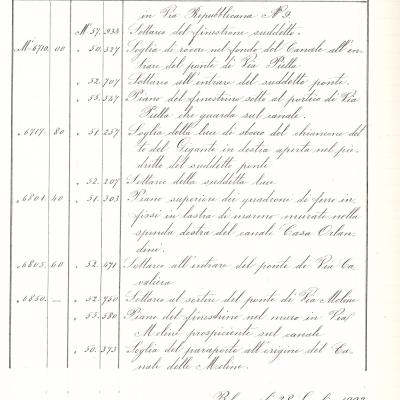 in Via Repubblicana N° 9.
M¹ 57. 934 Sottarco del finestrone suddetto.
M¹ 6710. 00 „ 50. 527 Soglia di rovere nel fondo del Canale all'en-
trare del ponte di Via Piella
„ 52. 707 Sottarco all'entrare del suddetto ponte.
„ 53. 547 Piano del finestrino sotto al portico di Via
Piella che guarda sul canale.
„ 6717. 80 „ 51. 257 Soglia della luce di sbocco del chiavicone det
to del Gigante in destra aperta nel pie-
dritto del suddetto ponte
„ 52. 207 Sottarco della suddetta luce.
„ 6801. 40 „ 51. 303 Piano superiore dei quadroni di ferro in-
fissi in lastra di marmo murate nella
sponda destra del canale Casa Orlan-
dini.
„ 6805. 60 „ 52. 471 Sottarco all'entrare del ponte di Via Ca-
valiera
„ 6850. — „ 52. 750 Sottarco al sortire del ponte di Via Moline
„ 53. 580 Piano del finestrino nel muro in Via
Molini prospiciente sul canale
„ 50. 373 Soglia del paraporto all'origine del Ca-
nale delle Moline.